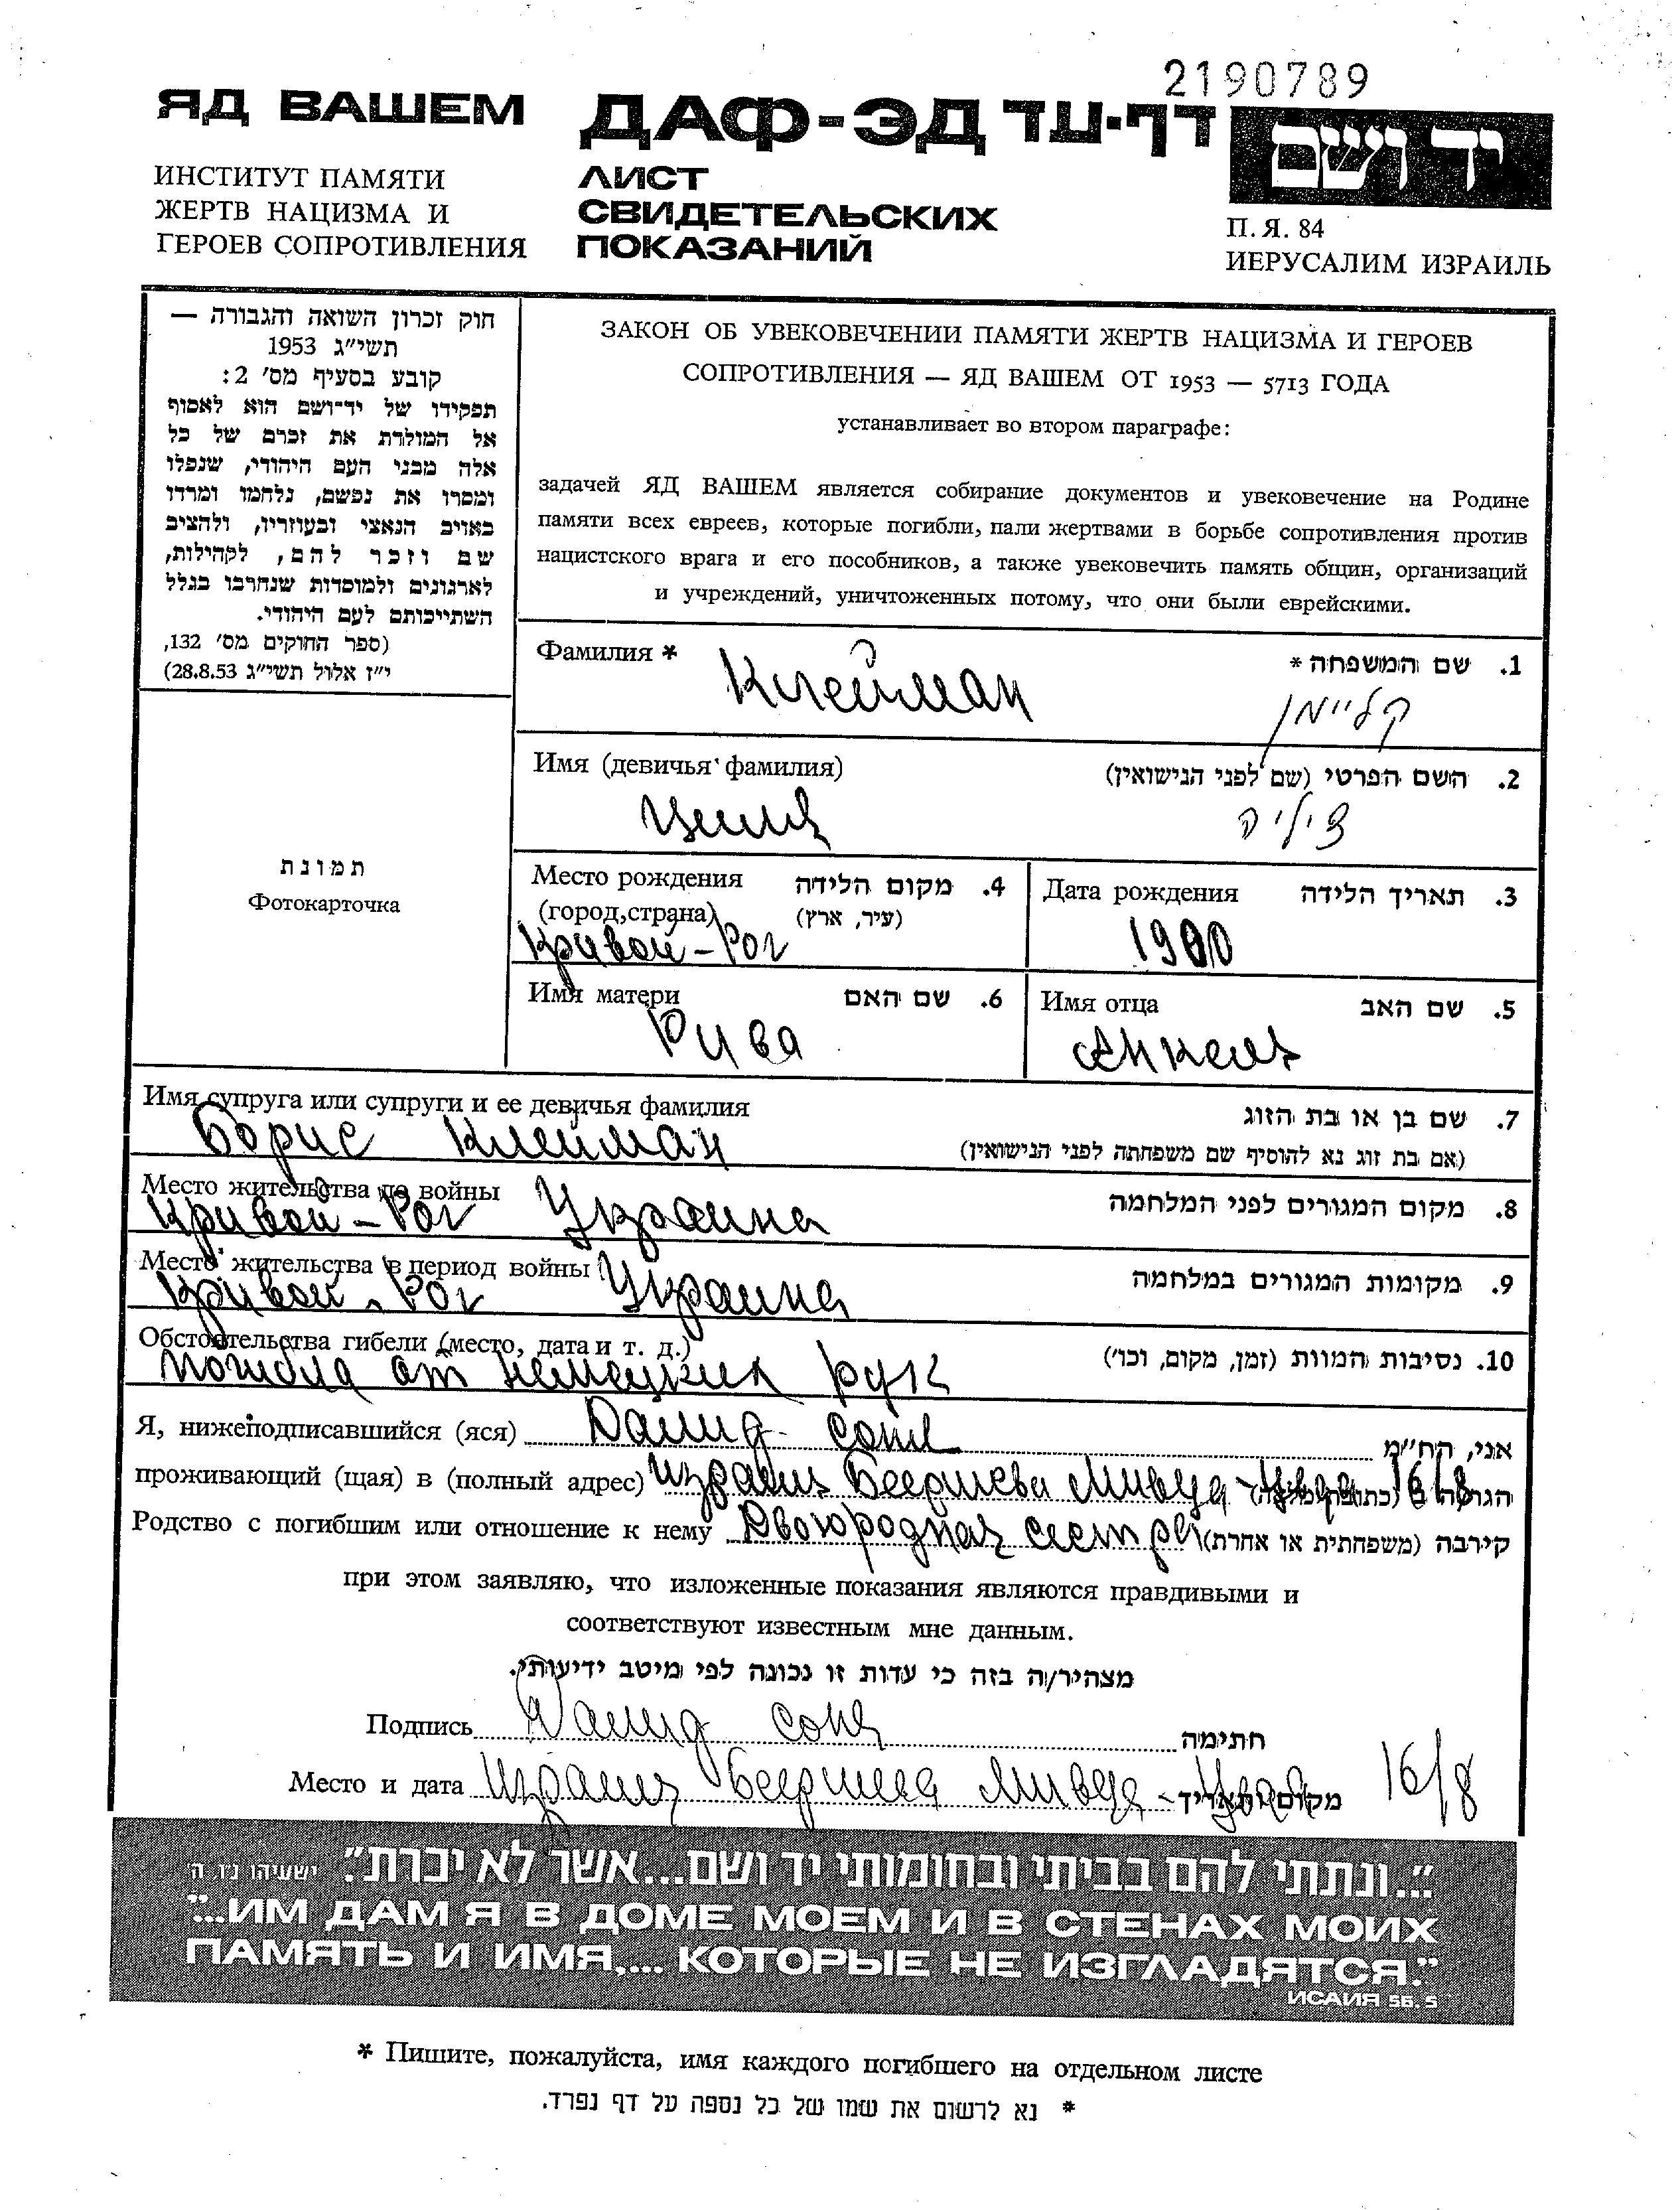 2190789
ЯД ВАШЕМ ДАФ-ЭД דף-עד יד ושם
ИНСТИТУТ ПАМЯТИ
ЖЕРТВ НАЦИЗМА И
ГЕРОЕВ СОПРОТИВЛЕНИЯ
ЛИСТ
СВИДЕТЕЛЬСКИХ
ПОКАЗАНИЙ
П. Я. 84
ИЕРУСАЛИМ ИЗРАИЛЬ
חוק זכרון השואה והגבורה —
תשי״ג 1953
קובע בסעיף מס׳ 2:
תפקידו של יד־ושם הוא לאסוף
אל המולדת את זכרם של כל
אלה מבני העם היהודי, שנפלו
ומסרו את נפשם, נלחמו ומרדו
באויב הנאצי ובעוזריו, ולהציב
שם וזכר להם, לקהילות,
לארגונים ולמוסדות שנחרבו בגלל
השתייכותם לעם היהודי.
(ספר החוקים מס׳ 132,
י״ז אלול תשי״ג 28.8.53)
ЗАКОН ОБ УВЕКОВЕЧЕНИИ ПАМЯТИ ЖЕРТВ НАЦИЗМА И ГЕРОЕВ
СОПРОТИВЛЕНИЯ — ЯД ВАШЕМ ОТ 1953 — 5713 ГОДА
устанавливает во втором параграфе:
задачей ЯД ВАШЕМ является собирание документов и увековечение на Родине
памяти всех евреев, которые погибли, пали жертвами в борьбе сопротивления против
нацистского врага и его пособников, а также увековечить память общин, организаций
и учреждений, уничтоженных потому, что они были еврейскими.
Фамилия * 1. שם המשפחה *
Клейман קליימן
Имя (девичья фамилия) 2. השם הפרטי (שם לפני הנישואין)
Циля ציליה
תמונת
Фотокарточка
Место рождения 4. מקום הלידה
(город, страна) (עיר, ארץ)
Кривой-Рог
Дата рождения 3. תאריך הלידה
1900
Имя матери 6. שם האם
Рива
Имя отца 5. שם האב
Анкель
Имя супруга или супруги и ее девичья фамилия 7. שם בן או בת הזוג
Борис Клейман (אם בת זוג נא להוסיף שם משפחתה לפני הנישואין)
Место жительства до войны 8. מקום המגורים לפני המלחמה
Кривой-Рог Украина
Место жительства в период войны 9. מקומות המגורים במלחמה
Кривой-Рог Украина
Обстоятельства гибели (место, дата и т. д.) 10. נסיבות המוות (זמן, מקום, וכו׳)
погибла от немецких рук
Я, нижеподписавшийся (яся) Далид Соня אני, הח״מ
проживающий (щая) в (полный адрес) Израиль Беершева Мивца-Увда 16/8 הגר/ה ב (כתובת מלאה)
Родство с погибшим или отношение к нему Двоюродная сестра קירבה (משפחתית או אחרת)
при этом заявляю, что изложенные показания являются правдивыми и
соответствуют известным мне данным.
מצהיר/ה בזה כי עדות זו נכונה לפי מיטב ידיעותי.
Подпись Далид Соня חתימה
Место и дата Израиль Беершева Мивца-Увда 16/8 מקום ותאריך
"...ונתתי להם בביתי ובחומותי יד ושם...אשר לא יכרת." ישעיהו נ״ו ה׳
"...ИМ ДАМ Я В ДОМЕ МОЕМ И В СТЕНАХ МОИХ
ПАМЯТЬ И ИМЯ,... КОТОРЫЕ НЕ ИЗГЛАДЯТСЯ."
ИСАИЯ 56. 5
* Пишите, пожалуйста, имя каждого погибшего на отдельном листе
* נא לרשום את שמו של כל נספה על דף נפרד.